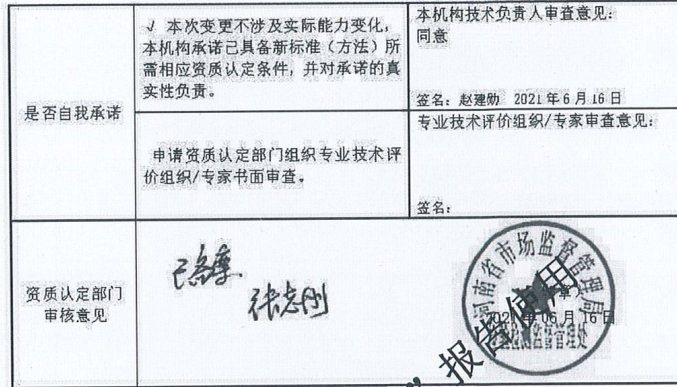 是否自我承诺
√ 本次变更不涉及实际能力变化，
本机构承诺已具备新标准（方法）所
需相应资质认定条件，并对承诺的真
实性负责。
本机构技术负责人审查意见：
同意
签名：赵建勋 2021年6月16日
申请资质认定部门组织专业技术评
价组织/专家书面审查。
专业技术评价组织/专家审查意见：
签名：
资质认定部门
审核意见
已备案
张志刚
河南省市场监督管理局
章）
2021年06月16日
检测监督管理处
报告使用